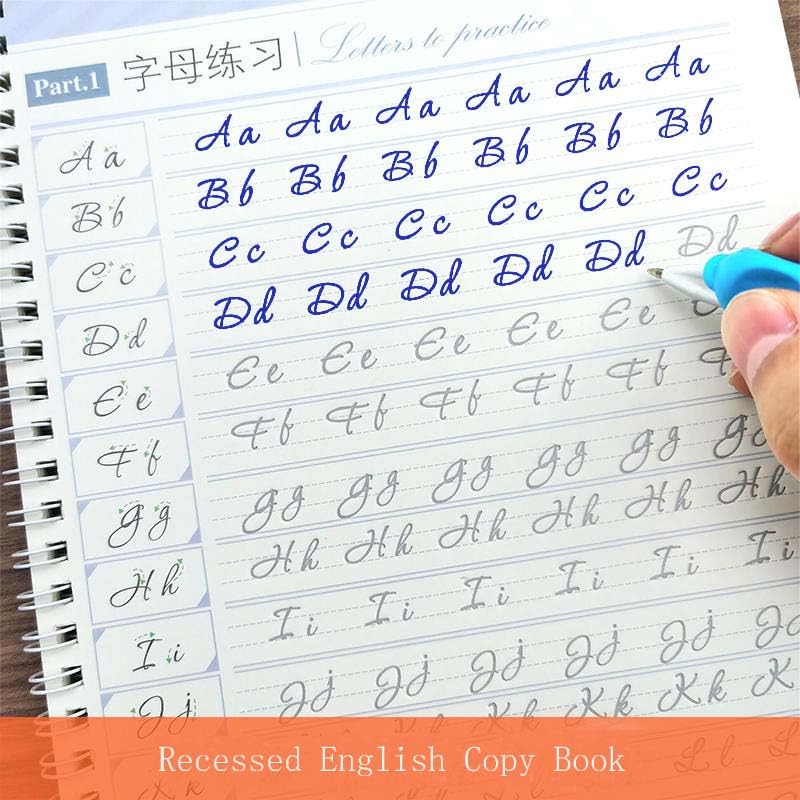 Part.1 字母练习 Letters to practice
Aa Aa Aa Aa Aa Aa Aa
Bb Bb Bb Bb Bb Bb Bb
Cc Cc Cc Cc Cc Cc Cc
Dd Dd Dd Dd Dd Dd Dd
Ee Ee Ee Ee Ee Ee
Ff Ff Ff Ff Ff Ff
Gg Gg Gg Gg Gg Gg Gg
Hh Hh Hh Hh Hh Hh Hh
Ii Ii Ii Ii Ii Ii Ii
Jj Jj Jj Jj Jj Jj
Kk Kk Kk K
Ll
Recessed English Copy Book